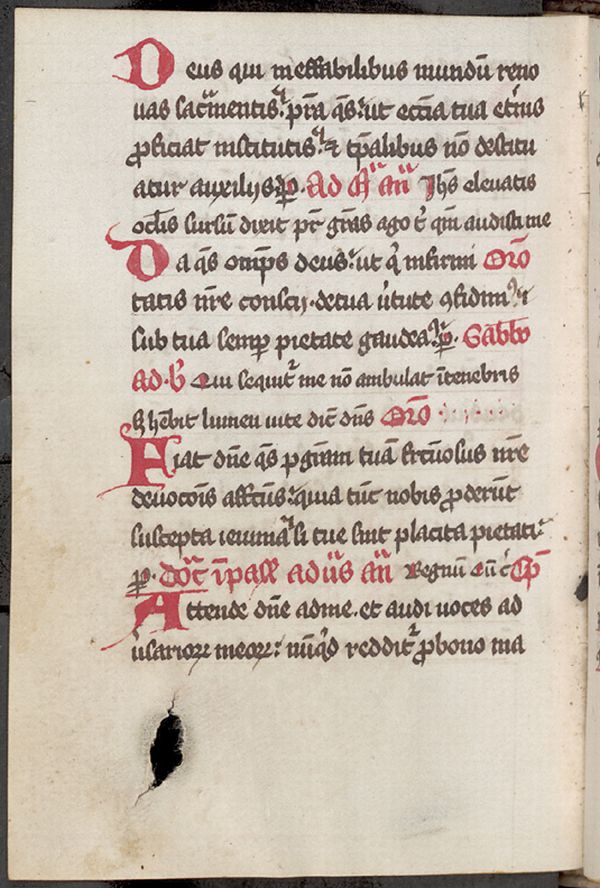 Deus qui ineffabilibus mundū reno
uas sac̄mentis: pr̄a q̄s: ut ecc̄ia tua et̄nis
ꝓficiat institutis: ⁊ tp̄alibus nō destitu
atur auxilijs p̱. Ad m̄ an̄ Jh̄s eleuatis
oc̄lis sursū dixit pr̄ gr̄as ago t' qm̄ audisti me
Da q̄s omp̄s deus: ut q̇ infirmi Or̄o
tatis nr̄e conscij. de tua u̇tute ꝯfidim⁹: ⁊
sub tua semꝑ pietate gaudea. p̱. Sabb̄o
ad. b̄ Qui sequit' me nō ambulat ī tenebris
s; hēbit lumen uite dic̄t dn̄s Or̄o
Fiat dn̄e q̄s ꝑ gr̄am tuā fructuosus nr̄e
deuoc̄ois aff̄cus: quia tūc nobis ꝓderūt
suscepta ieiunia. si tue sint placita pietati.
p̱. do᷒c ī pass̄ ad u̇s an̄ Regnū cp̄
Attende dn̄e ad me. et audi uoces ad
u̇sarioꝝ meoꝝ: nūq̇d reddit' ꝓ bono ma